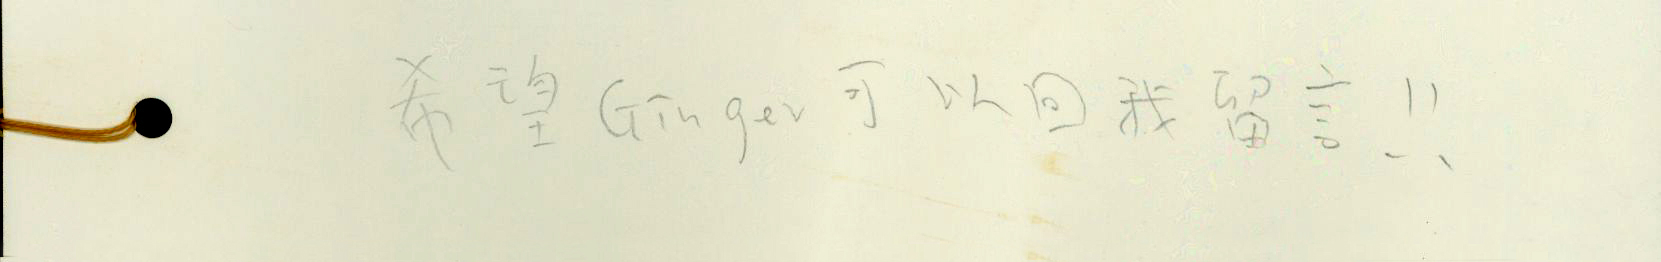 希望Ginger可以回我留言!!